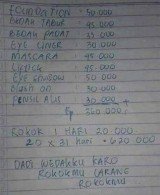 FOUNDATION : 50.000
BEDAK TABUR : 45.000
BEDAK PADAT : 35.000
EYE LINER : 30.000
MASCARA : 45.000
LIPICE : 25.000
EYE SHADOW : 50.000
BLUSH ON : 30.000
PENSIL ALIS : 30.000
ROKOK 1 HARI 20.000
20 x 31 HARI = 620.000
DADI WEDAKKU KARO
ROKOKMU LARANG
ROKOKMU